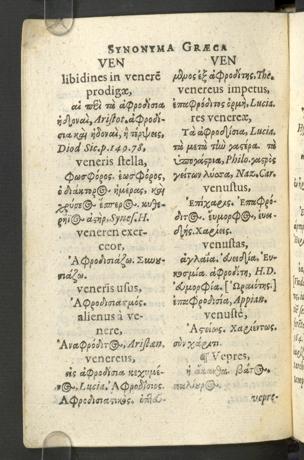 SYNONYMA GRÆCA
VEN
libidines in venerē
prodigæ,
αἱ περὶ τὰ ἀφροδίσια
ἡδοναὶ, Aristot. ἀφροδί-
σια καὶ ἡδοναὶ, ἢ τέρψεις,
Diod Sic. p. 149. 78,
veneris stella,
Φωσφόρος. ἑωσφόρος,
ἡμέρας, καὶ
Synes. H.
veneren exer-
ceor,
Ἀφροδισιάζω. Συνου-
σιάζω.
veneris usus,
Ἀφροδισιασμός.
alienus à ve-
nere,
Ἀναφρόδιτος, Aristæn.
venereus,
εἰς ἀφροδίσια
Lucia. Ἀφροδίσιος.
Ἀφροδισιαστικὸς.
VEN
μῦθος ἐξ ἀφροδίτης, The.
venereus impetus,
ἐπαφρόδιτος ὁρμὴ, Lucia.
res venereæ,
Τὰ ἀφροδίσια, Lucia.
τὰ μετὰ τὴν γαστέρα. τὰ
ὑπογάστρια, Philo. γαστρὸς
γείτων λύσσα, Naz. Car.
venustus,
Ἐπίχαρις. Ἐπαφρό-
διτος. εὔμορφος, εὐει-
δής. Χαρίεις.
venustas,
ἀγλαΐα. εὐειδία. Εὐ-
κοσμία. ἀφροδίτη, H. D.
εὐμορφία. [Ὡραιότης.]
ἐπαφροδισία, Appian.
venustè,
Ἀστείως. Χαριέντως.
σὺν χάριτι.
¶ Vepres,
ἡ ἄκανθα. βάτος.
παλίουρος.
vepre-